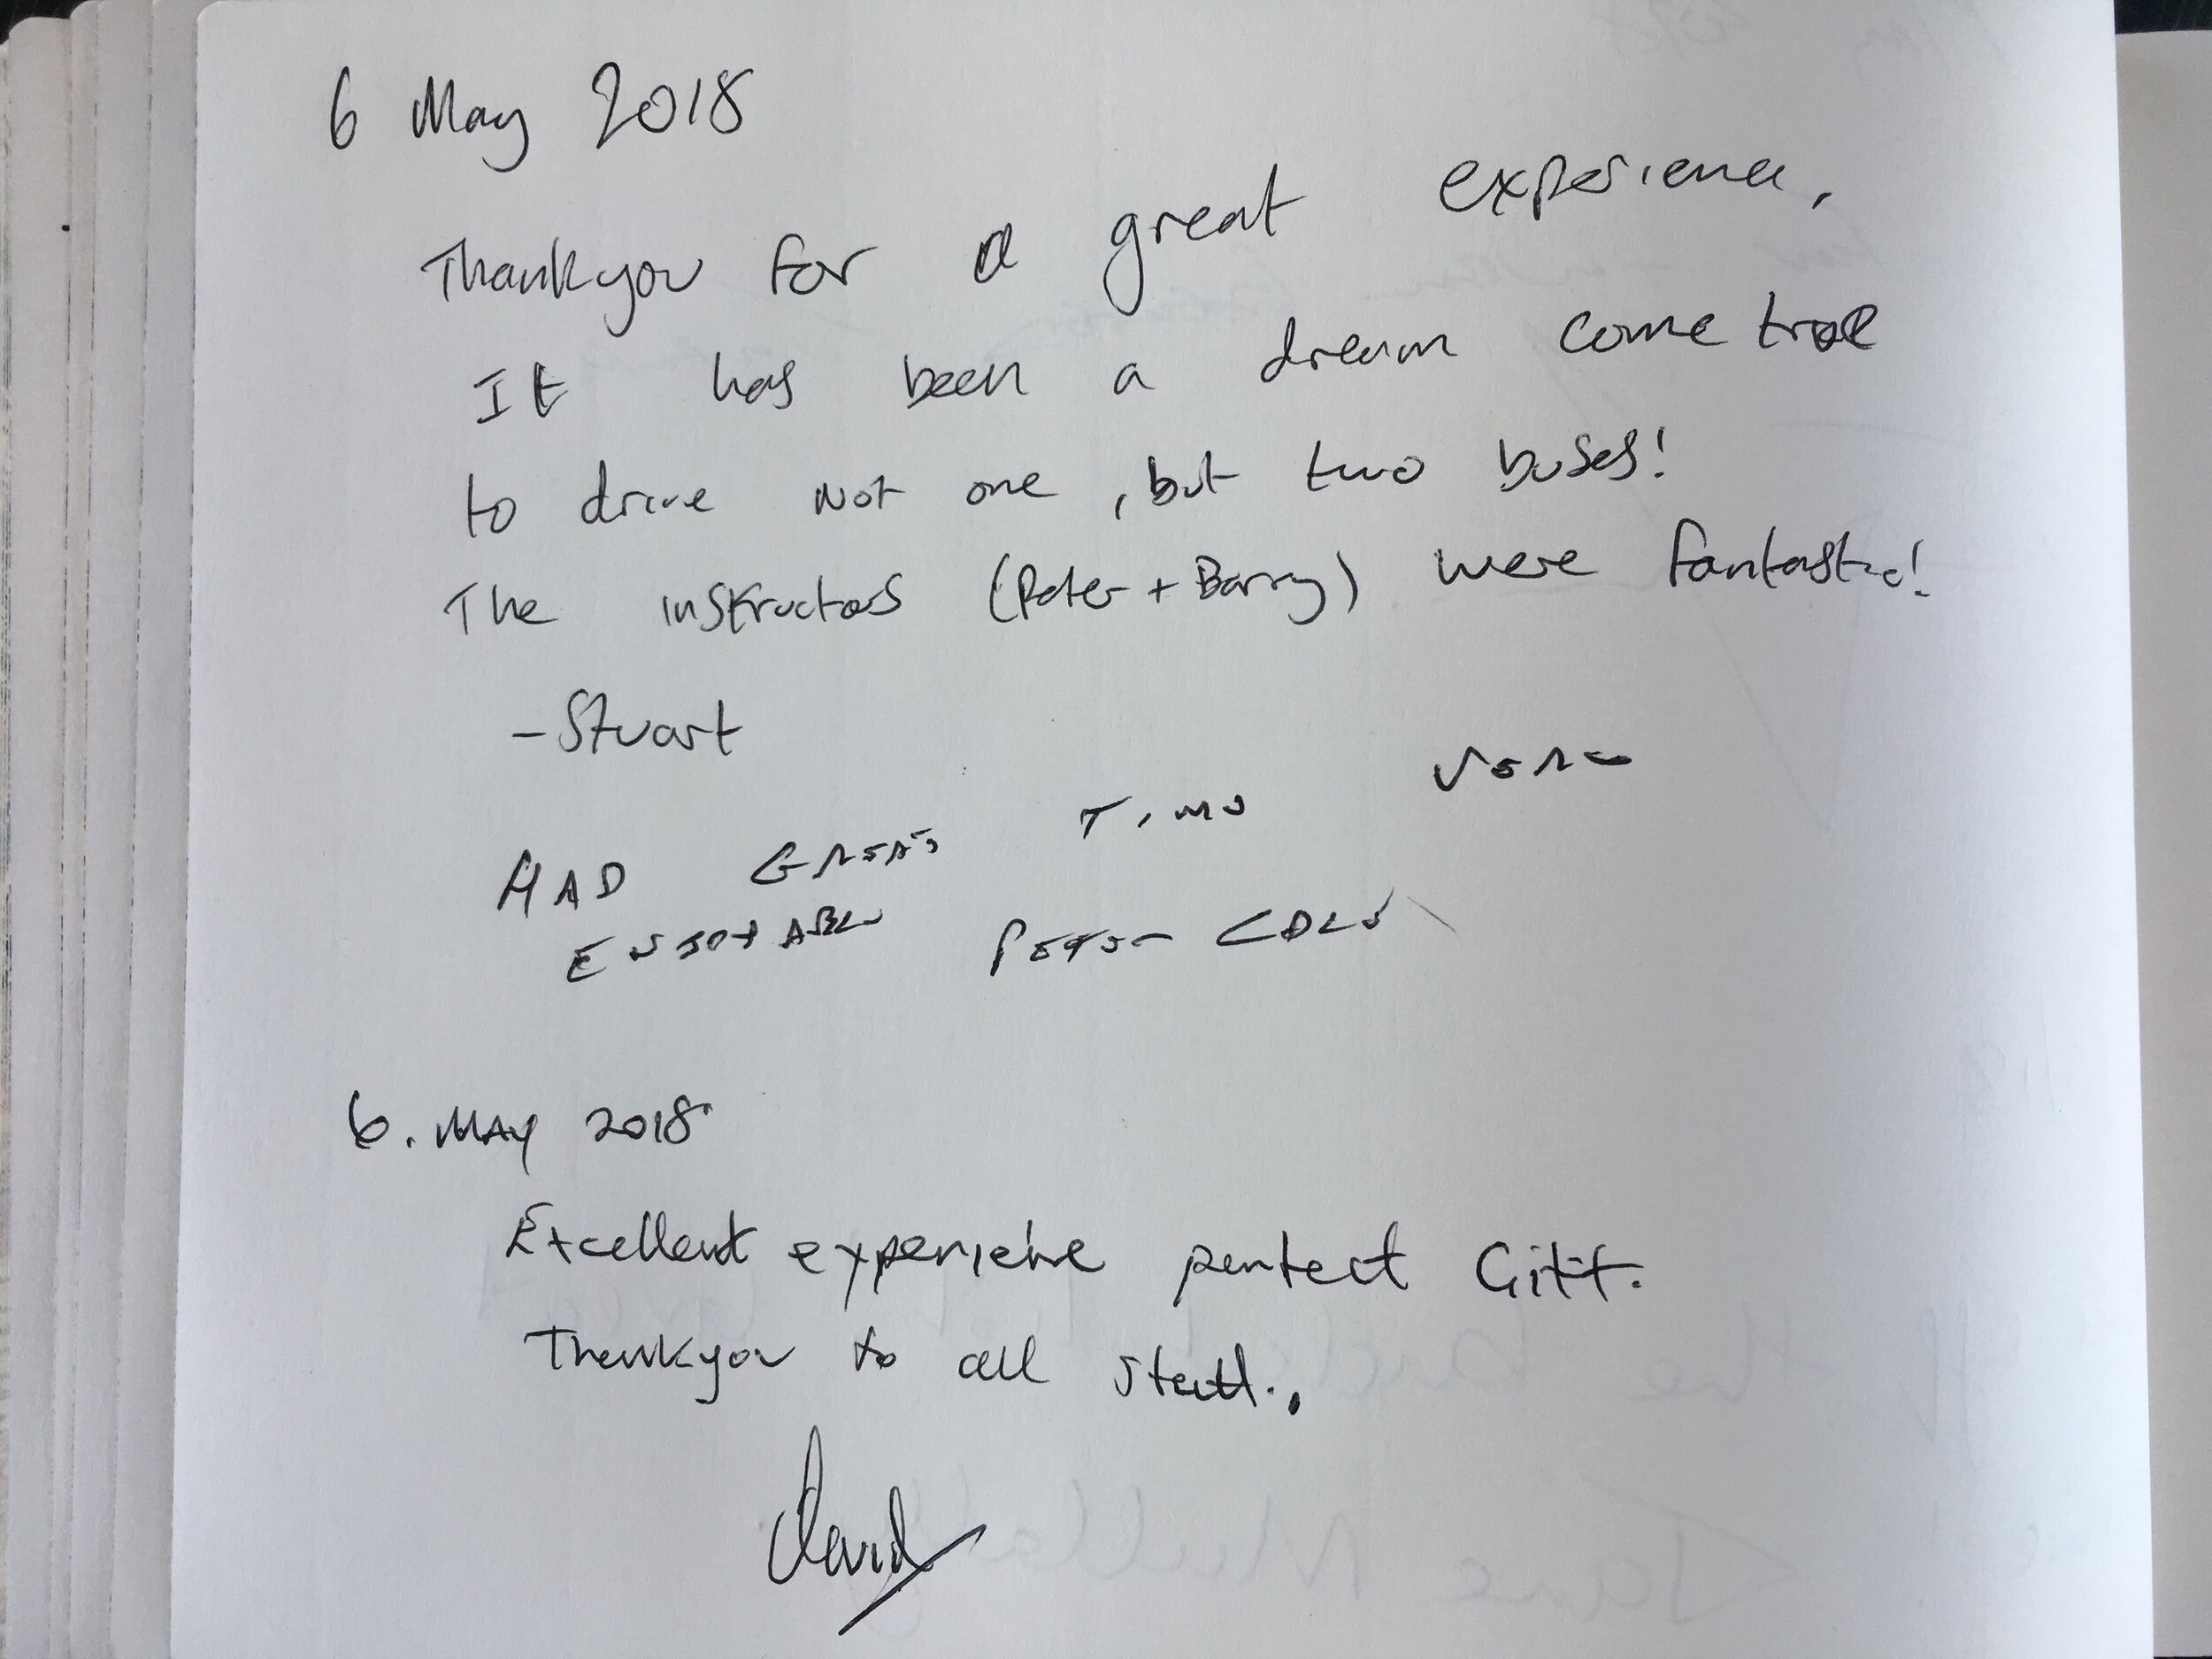 6 May 2018
Thankyou for a great experience,
It has been a dream come true
to drive not one, but two buses!
The instructors (Peter + Barry) were fantastic!
- Stuart
HAD GREAT TIME VERY
ENJOYABLE PETER COLE
6. MAY 2018
Excellent experience perfect Gift.
Thankyou to all staff.
David